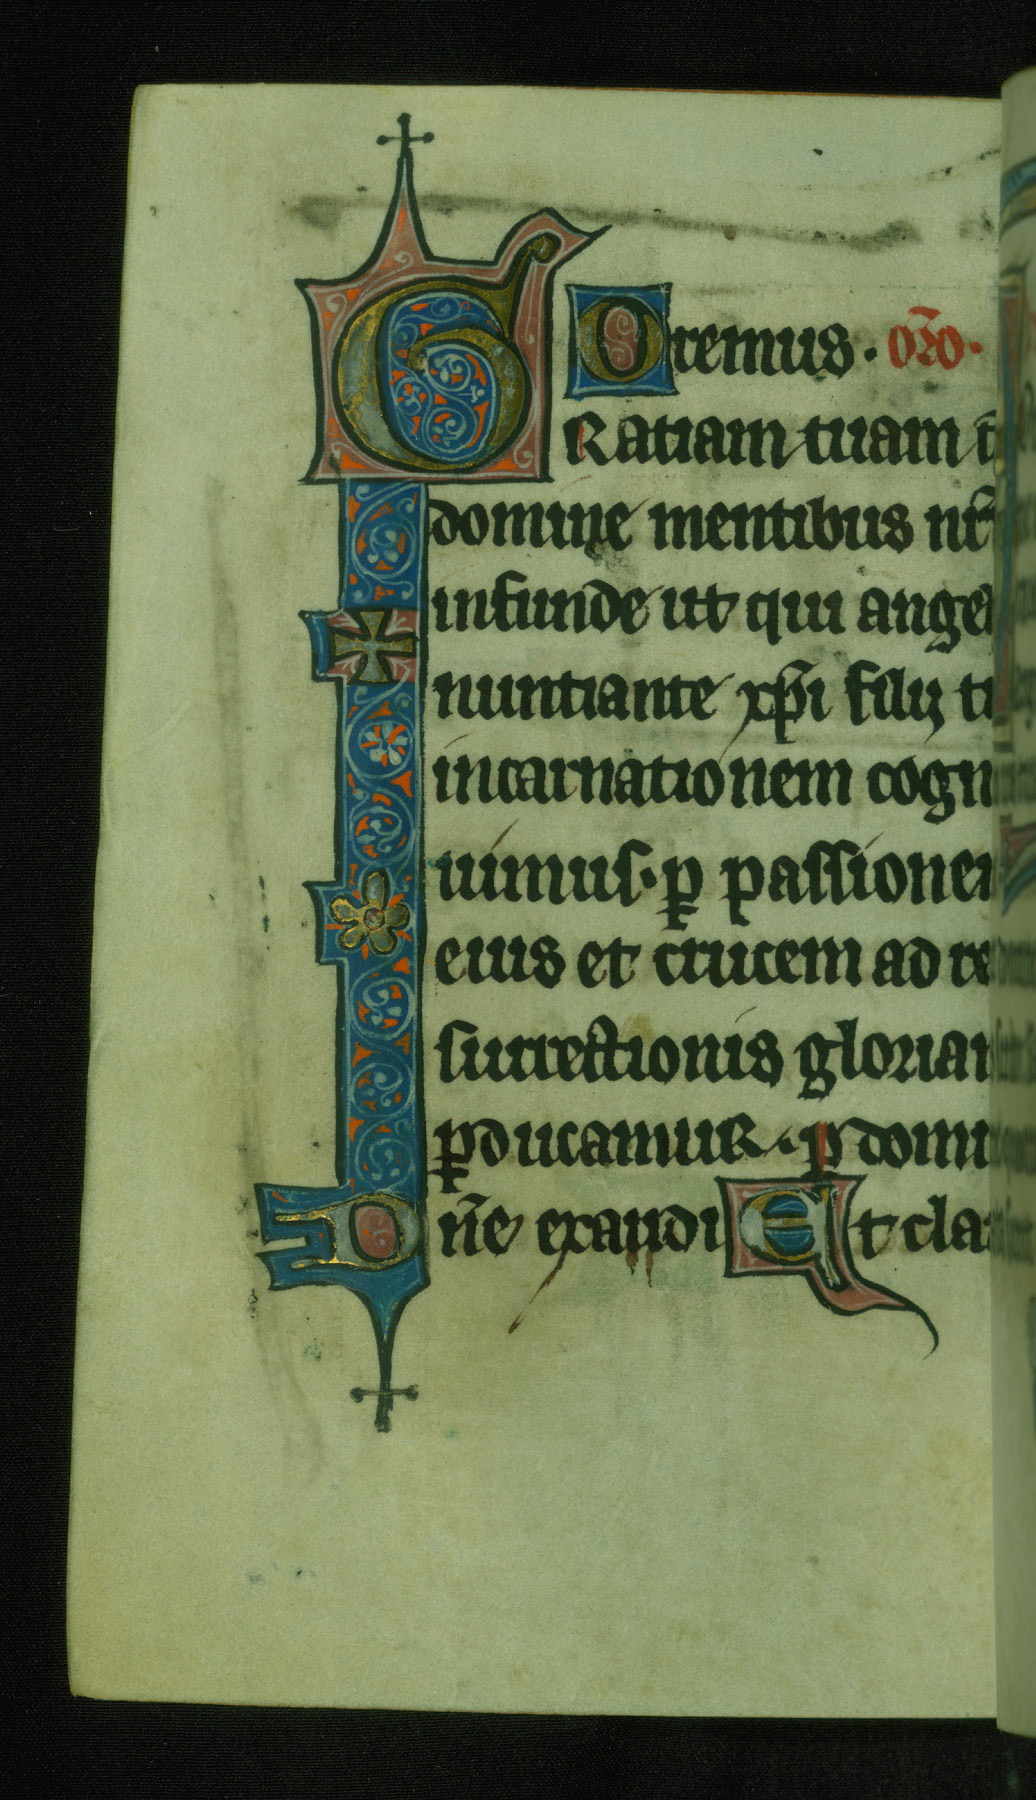 Oremus. or̃o.
GRatiam tuam
domine mentibus nr̃
infunde ut qui ange
nuntiante xp̃i filij tu
incarnationem cogn
uimus. ꝑ passionem
eius et crucem ad re
surrectionis gloriam
ꝑducamur. ꝑ domi
Dñe exaudi Et cla